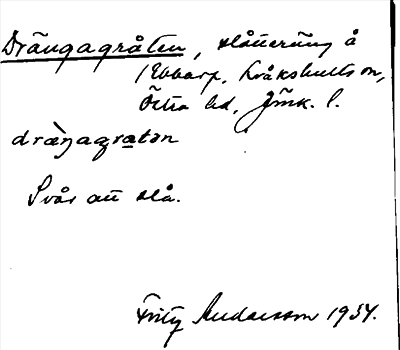 Drängagråten, slåtteräng å
Ebbarp, Loshults sn,
Östra hd, Jmk. l.
dræŋagratən
Svår att slå.
Fritz Andersson 1934.